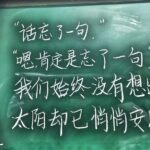 "话忘了一句."
"嗯肯定是忘了一句
我们始终没有想
太阳却已悄悄安